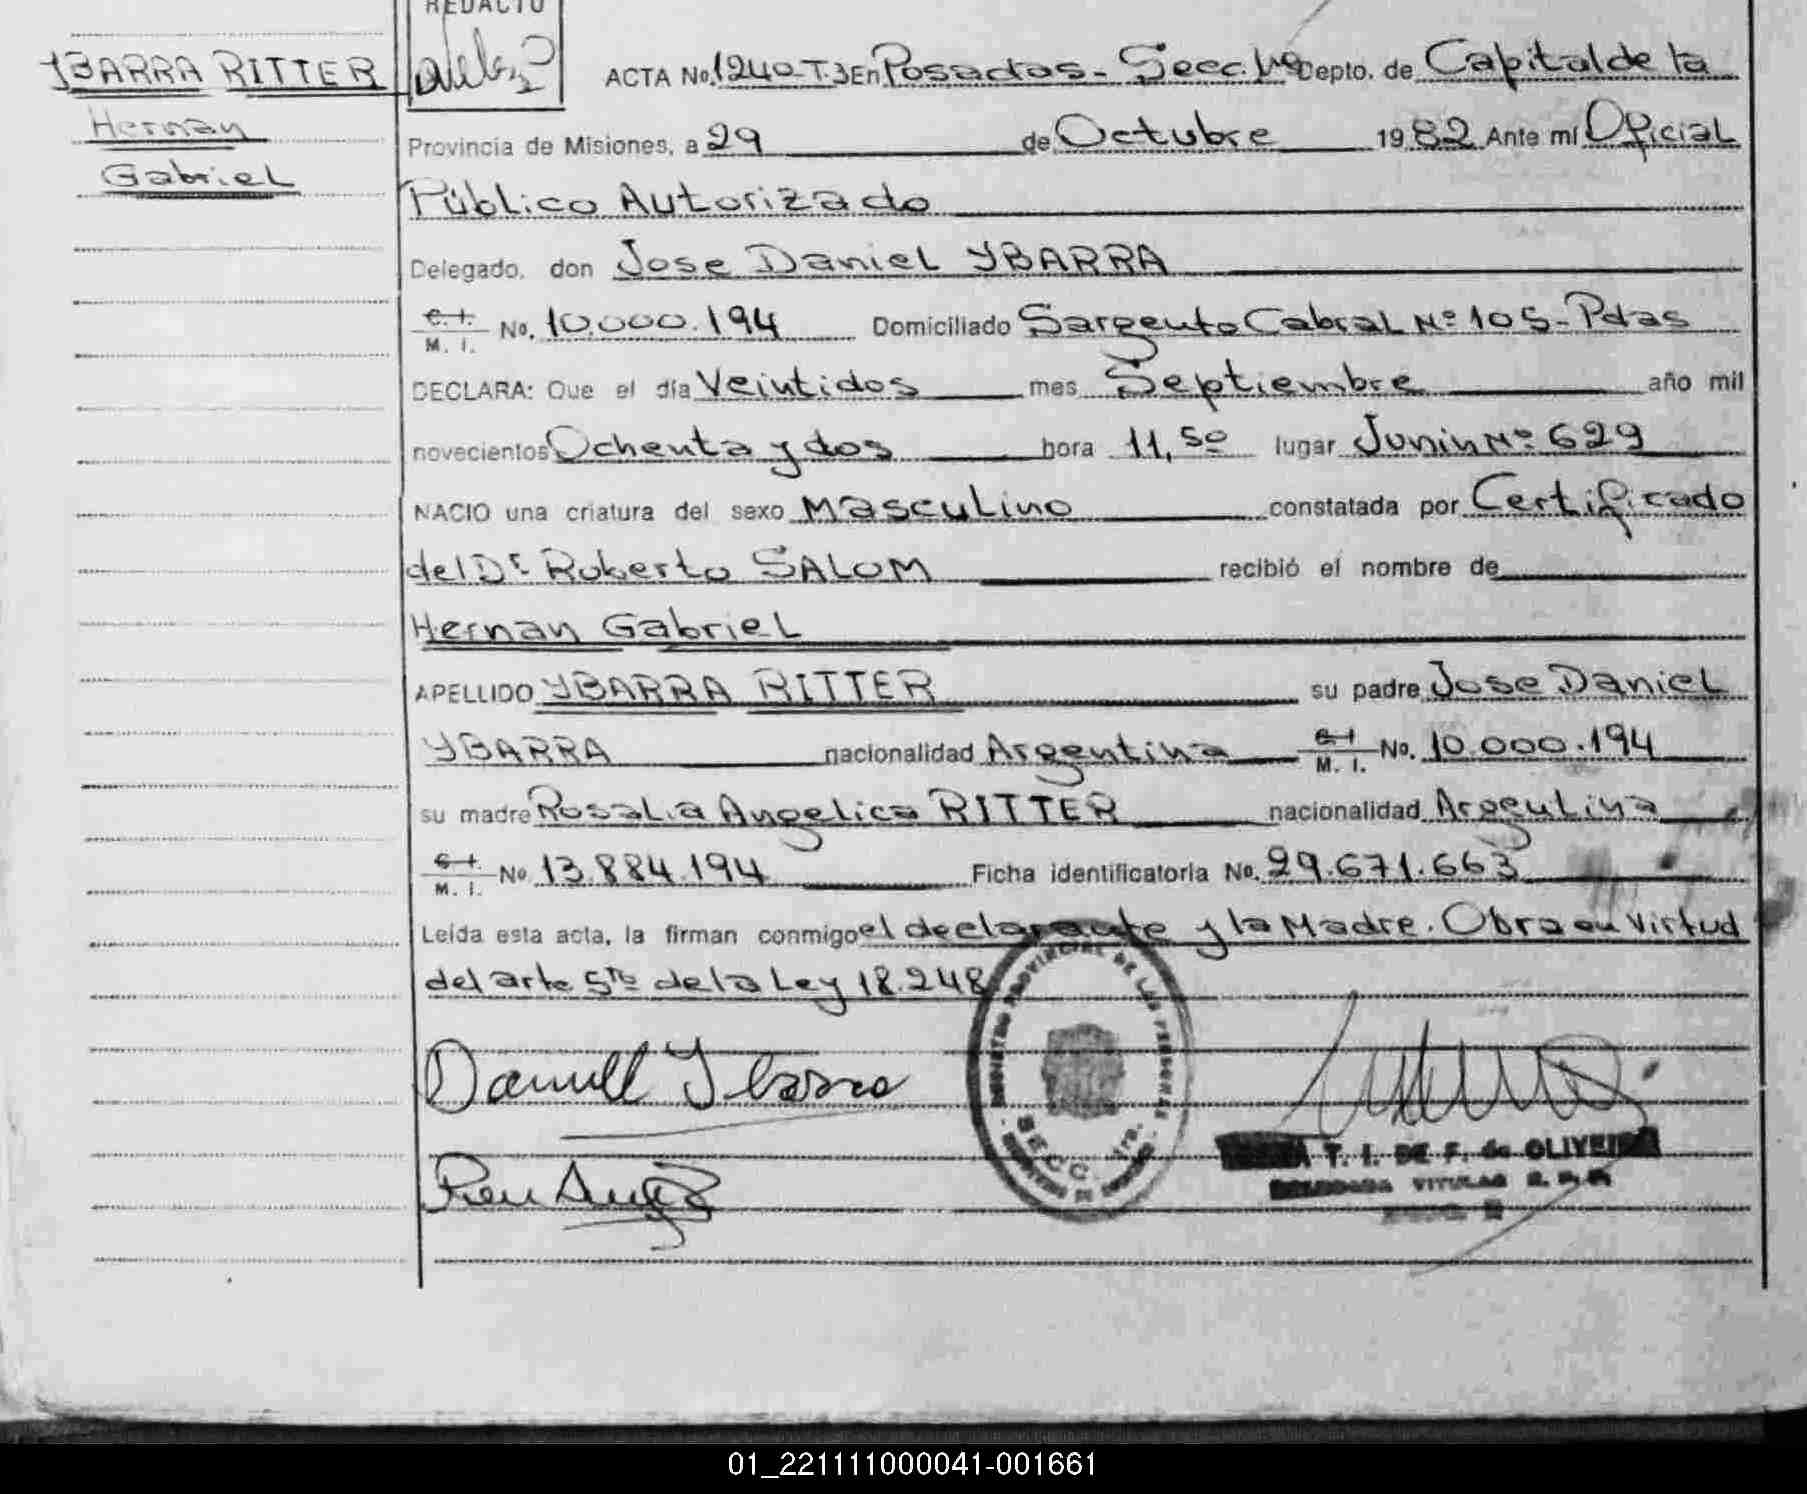 REDACTO
YBARRA RITTER
Hernan
Gabriel
ACTA No. 1240-T.3 En Posadas - Secc. 1ra Depto. de Capital de la
Provincia de Misiones, a 29 de Octubre 1982 Ante mí Oficial
Público Autorizado
Delegado, don Jose Daniel YBARRA
C. I. / M. I. No. 10.000.194 Domiciliado Sargento Cabral Nº 105 - Pdas
DECLARA: Que el día Veintidos mes Septiembre año mil
novecientos Ochenta y dos hora 11,50 lugar Junin Nº 629
NACIO una criatura del sexo Masculino constatada por Certificado
del Dr Roberto SALOM recibió el nombre de
Hernan Gabriel
APELLIDO YBARRA RITTER su padre Jose Daniel
YBARRA nacionalidad Argentina C. I. / M. I. No. 10.000.194
su madre Rosalia Angelica RITTER nacionalidad Argentina
C. I. / M. I. No 13.884.194 Ficha identificatoria No. 29.671.663
Leída esta acta, la firman conmigo el declarante y la Madre. Obra en Virtud
del arte 5to de la Ley 18.248
REGISTRO PROVINCIAL DE LAS PERSONAS
SECC. 1ra.
Daniel Ybarra
T. I. DE F. de OLIVEIRA
TITULAR
01_221111000041-001661